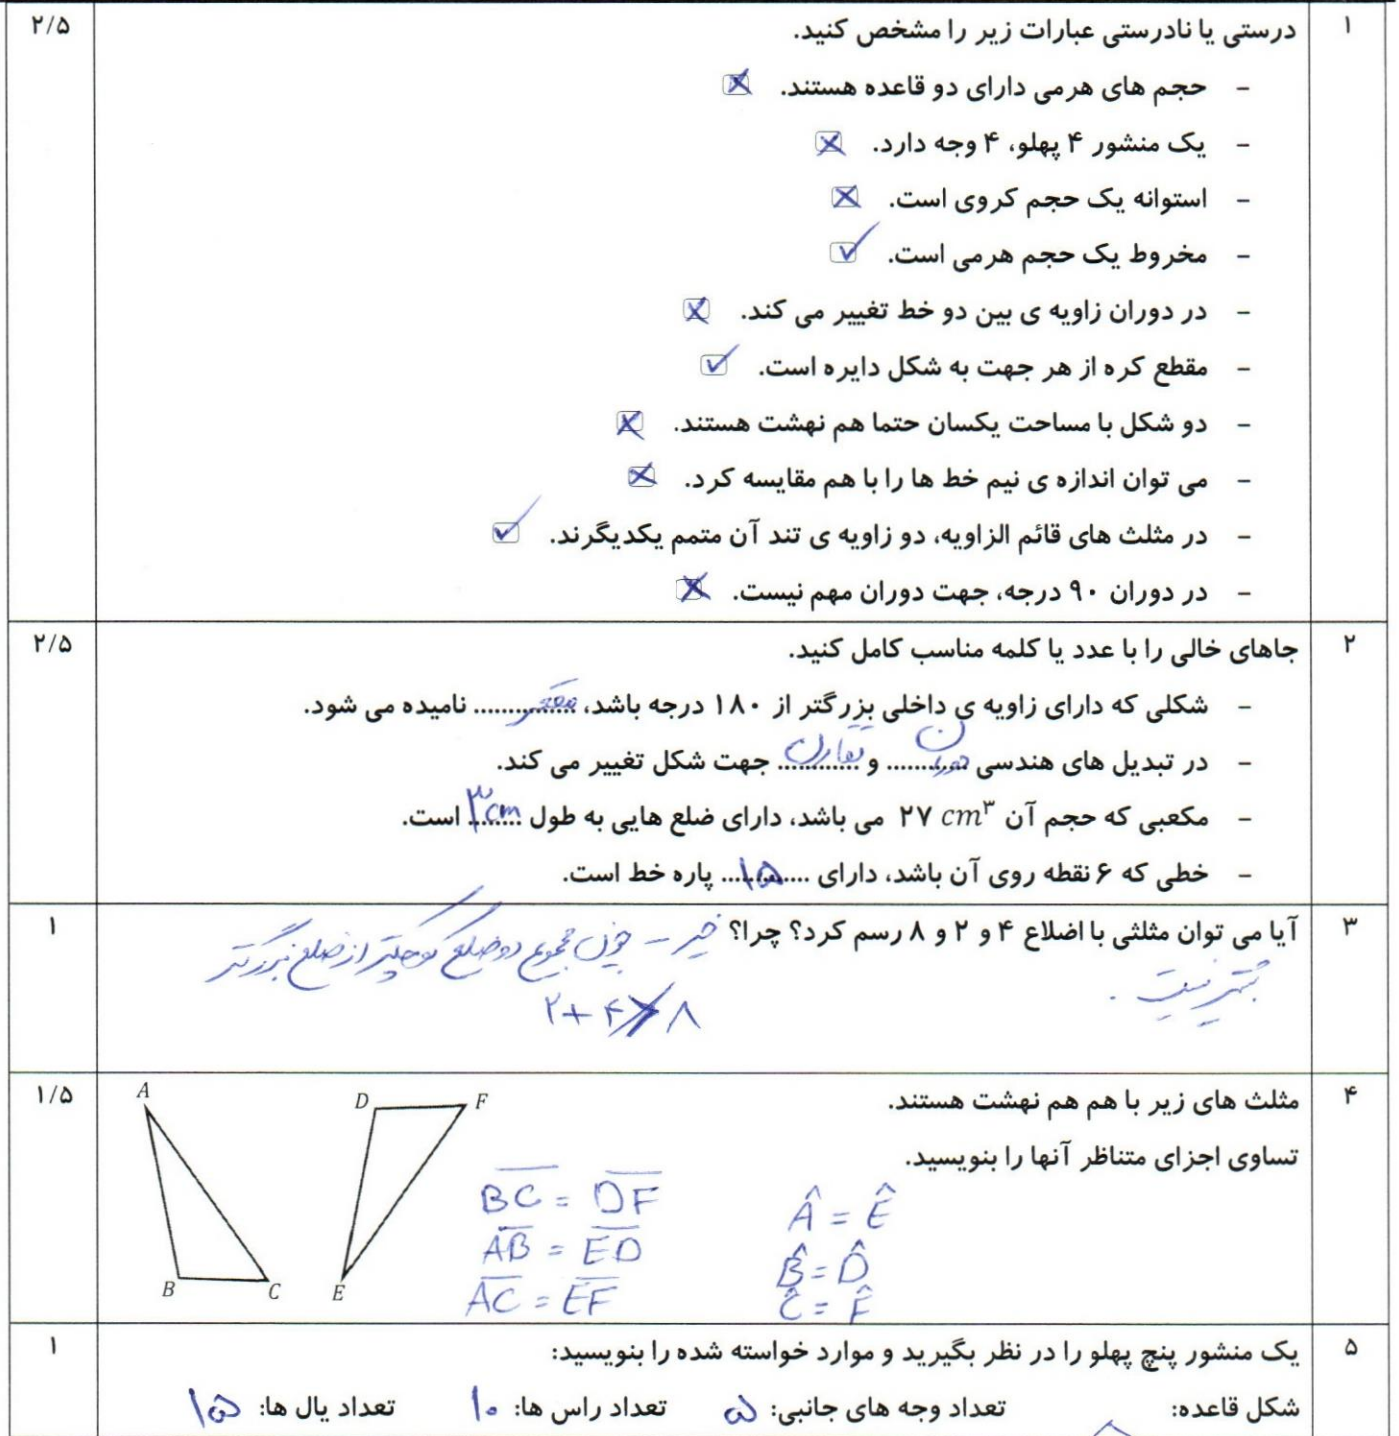 ۱ درستی یا نادرستی عبارات زیر را مشخص کنید. ۲/۵
- حجم های هرمی دارای دو قاعده هستند. ☒
- یک منشور ۴ پهلو، ۴ وجه دارد. ☒
- استوانه یک حجم کروی است. ☒
- مخروط یک حجم هرمی است. ☑
- در دوران زاویه ی بین دو خط تغییر می کند. ☒
- مقطع کره از هر جهت به شکل دایره است. ☑
- دو شکل با مساحت یکسان حتما هم نهشت هستند. ☒
- می توان اندازه ی نیم خط ها را با هم مقایسه کرد. ☒
- در مثلث های قائم الزاویه، دو زاویه ی تند آن متمم یکدیگرند. ☑
- در دوران ۹۰ درجه، جهت دوران مهم نیست. ☒
۲ جاهای خالی را با عدد یا کلمه مناسب کامل کنید. ۲/۵
- شکلی که دارای زاویه ی داخلی بزرگتر از ۱۸۰ درجه باشد، مقعر نامیده می شود.
- در تبدیل های هندسی دوران و تقارن جهت شکل تغییر می کند.
- مکعبی که حجم آن ۲۷ cm³ می باشد، دارای ضلع هایی به طول ۳cm است.
- خطی که ۶ نقطه روی آن باشد، دارای ۱۵ پاره خط است.
۳ آیا می توان مثلثی با اضلاع ۴ و ۲ و ۸ رسم کرد؟ چرا؟ خیر – چون مجموع دو ضلع کوچکتر از ضلع بزرگتر ۱
بیشتر نیست.
۲+۴≯۸
۴ مثلث های زیر با هم هم نهشت هستند. ۱/۵
تساوی اجزای متناظر آنها را بنویسید.
A D F
B C E
Â = Ê BC = DF
B̂ = D̂ AB = ED
Ĉ = F̂ AC = EF
۵ یک منشور پنج پهلو را در نظر بگیرید و موارد خواسته شده را بنویسید: ۱
شکل قاعده: تعداد وجه های جانبی: ۵ تعداد راس ها: ۱۰ تعداد یال ها: ۱۵